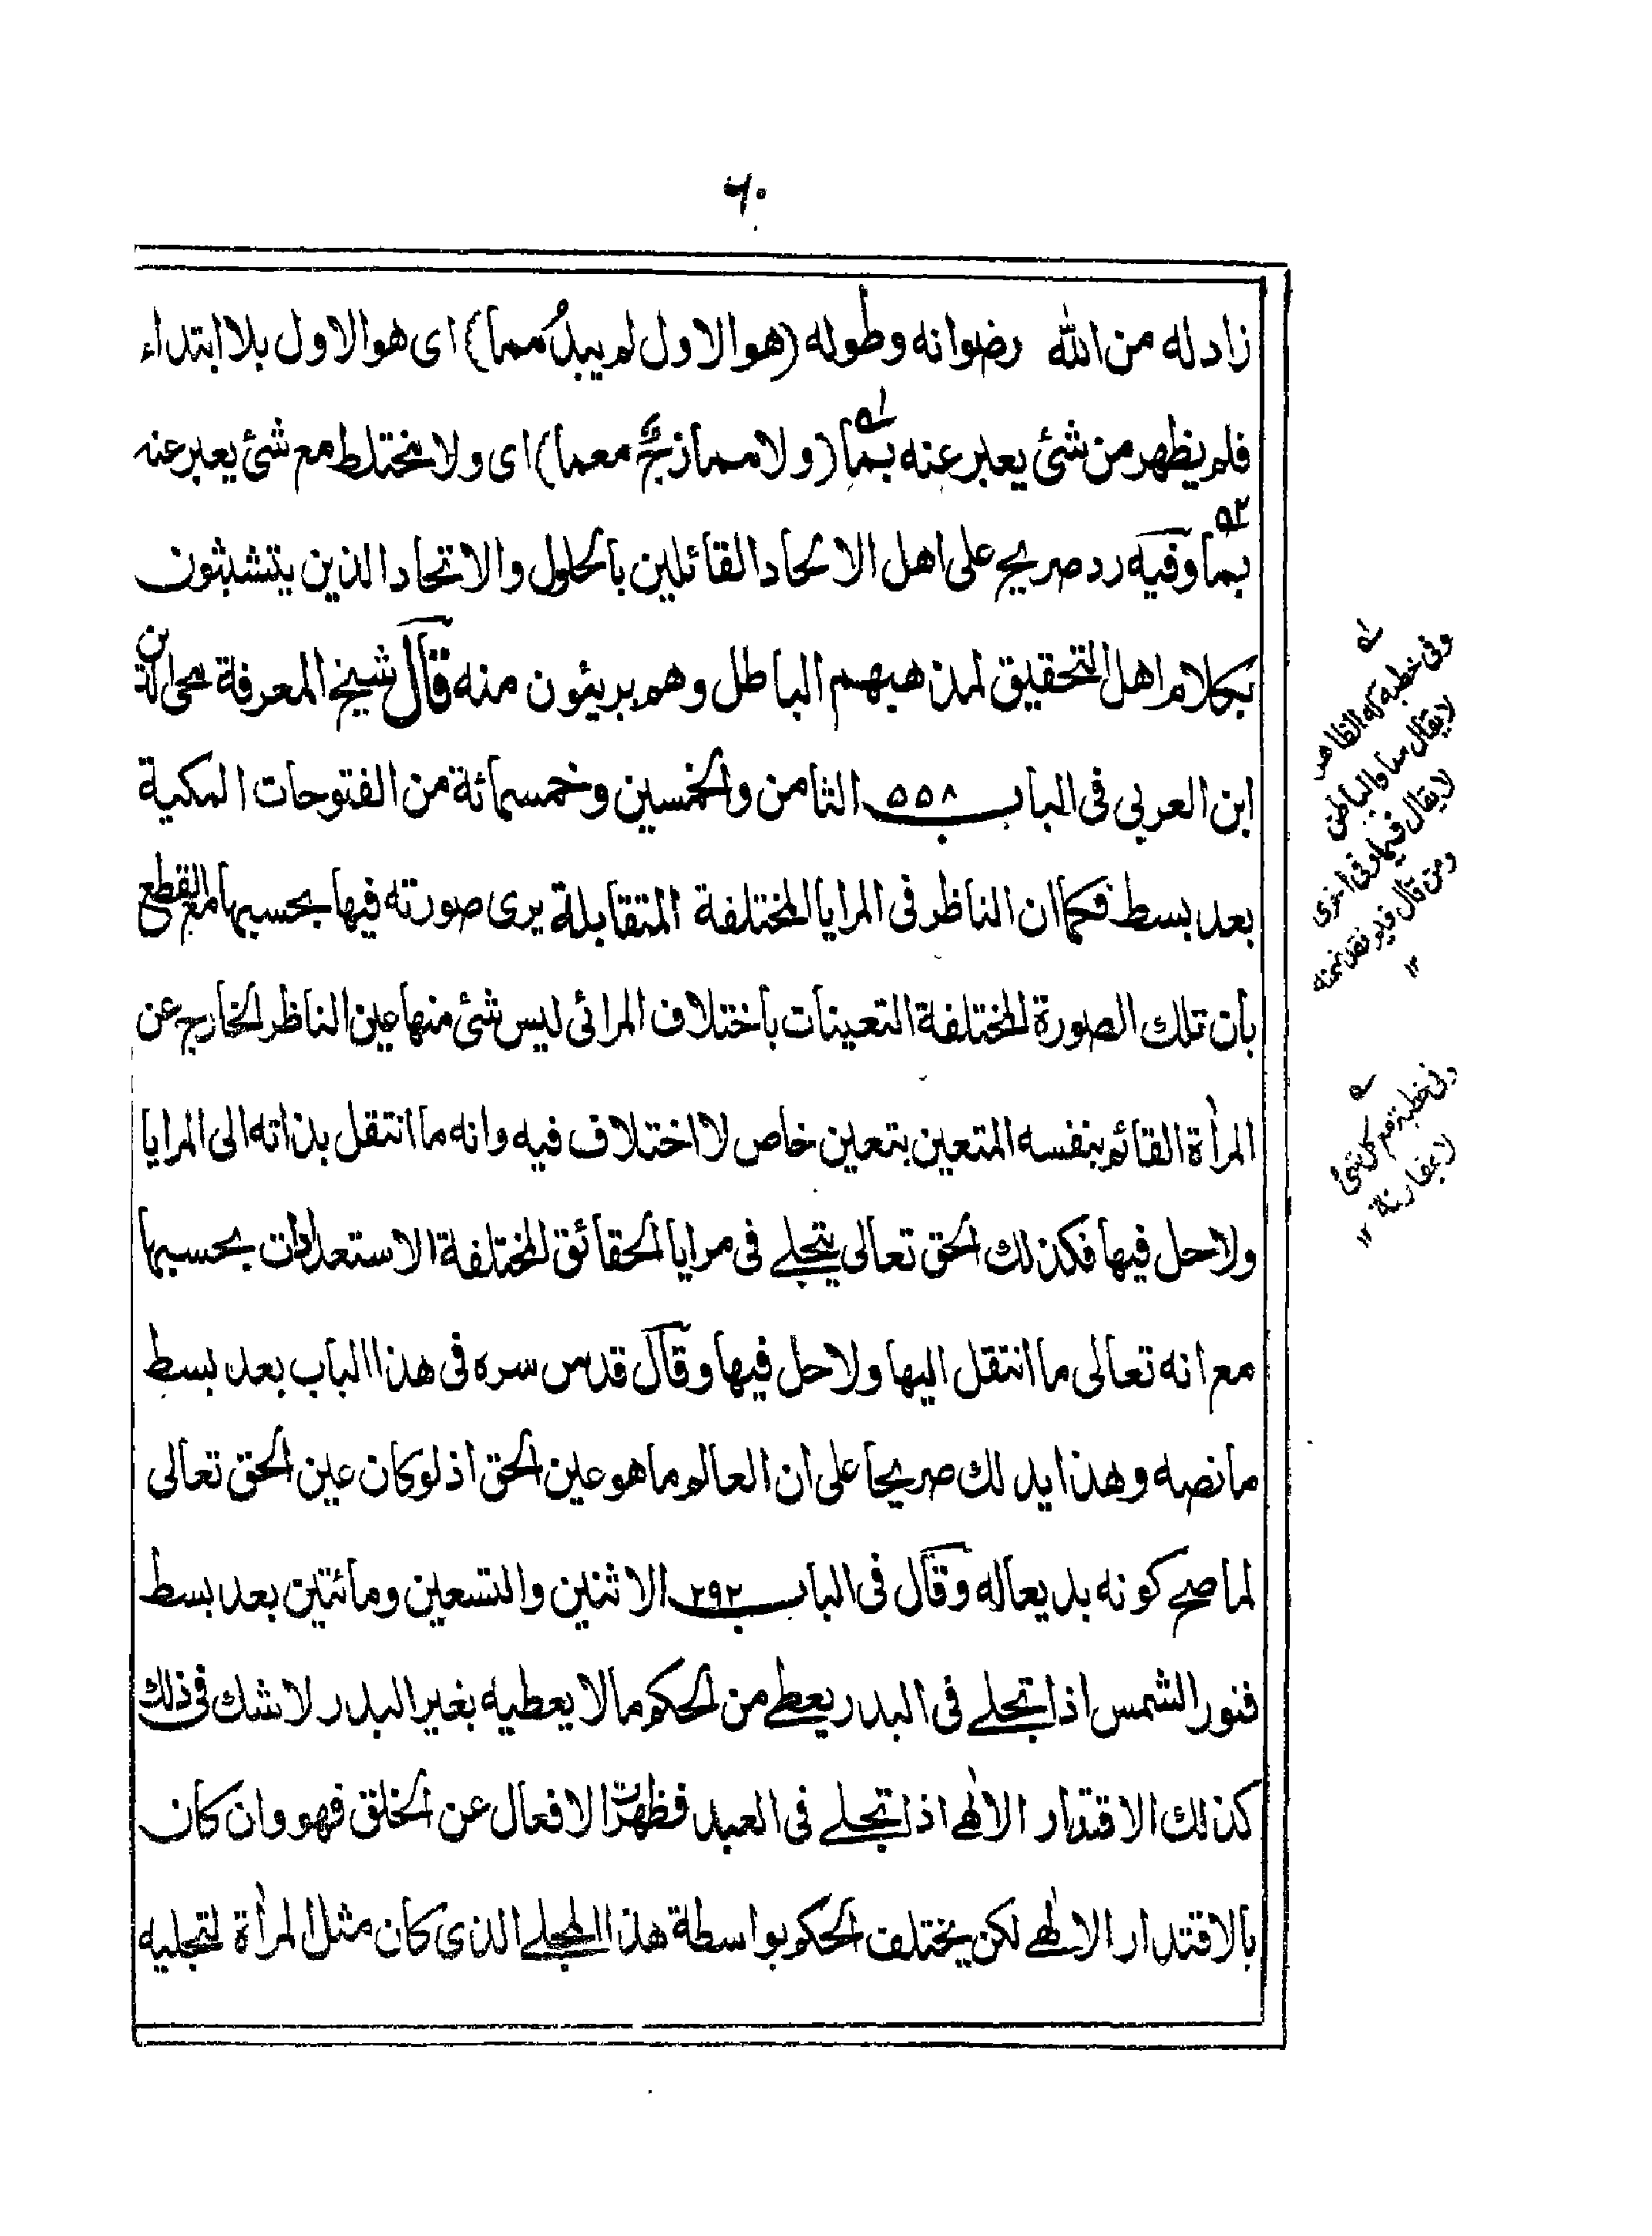 ٦٠
زاد له من الله رضوانه وطوله (هو الاول لم يبدُ مما) اى هو الاول بلا ابتداء
فلم يظهر من شئ يعبر عنه بما (ولا ممازج معما) اى ولا مختلط مع شئ يعبر عنه
بما وفيه رد صريح على اهل الالحاد القائلين بالحلول والاتحاد الذين يتشبثون
بكلام اهل التحقيق لمذهبهم الباطل وهم بريئون منه قال شيخ المعرفة محى الدين
ابن العربى فى الباب ٥٥٨ الثامن والخمسين وخمسمائة من الفتوحات المكية
بعد بسط فكما ان الناظر فى المرايا المختلفة المتقابلة يرى صورته فيها بحسبها مع القطع
بان تلك الصورة المختلفة التعينات باختلاف المرائى ليس شئ منها عين الناظر الخارج عن
المرأة القائم بنفسه المتعين بتعين خاص لا اختلاف فيه وانه ما انتقل بذاته الى المرايا
ولا حل فيها فكذلك الحق تعالى يتجلے فى مرايا الحقائق المختلفة الاستعدادات بحسبها
مع انه تعالى ما انتقل اليها ولا حل فيها وقال قدس سره فى هذا الباب بعد بسط
ما نصه وهذا يدلك صريحا على ان العالم ما هو عين الحق اذ لو كان عين الحق تعالى
لما صح كونه بديعا له وقال فى الباب ٢٩٢ الاثنين والتسعين ومائتين بعد بسط
فنور الشمس اذا تجلے فى البدر يعطے من الحكم مالا يعطيه بغير البدر لا شك فى ذلك
كذلك الاقتدار الالٰهے اذا تجلے فى العبد فظهرت الافعال عن الخلق فهو وان كان
بالاقتدار الالٰهے لكن يختلف الحكم بواسطة هذا المجلے الذى كان مثل المرأة لتجليه
وفى خطبة له الظاهر
لا يقال مما والباطن
لا يقال فيما وفى اخرى
ومن قال فيم فقد ضمنه
١٢
وفى خطبة مع كل شئ
لا بمقارنة
١٢